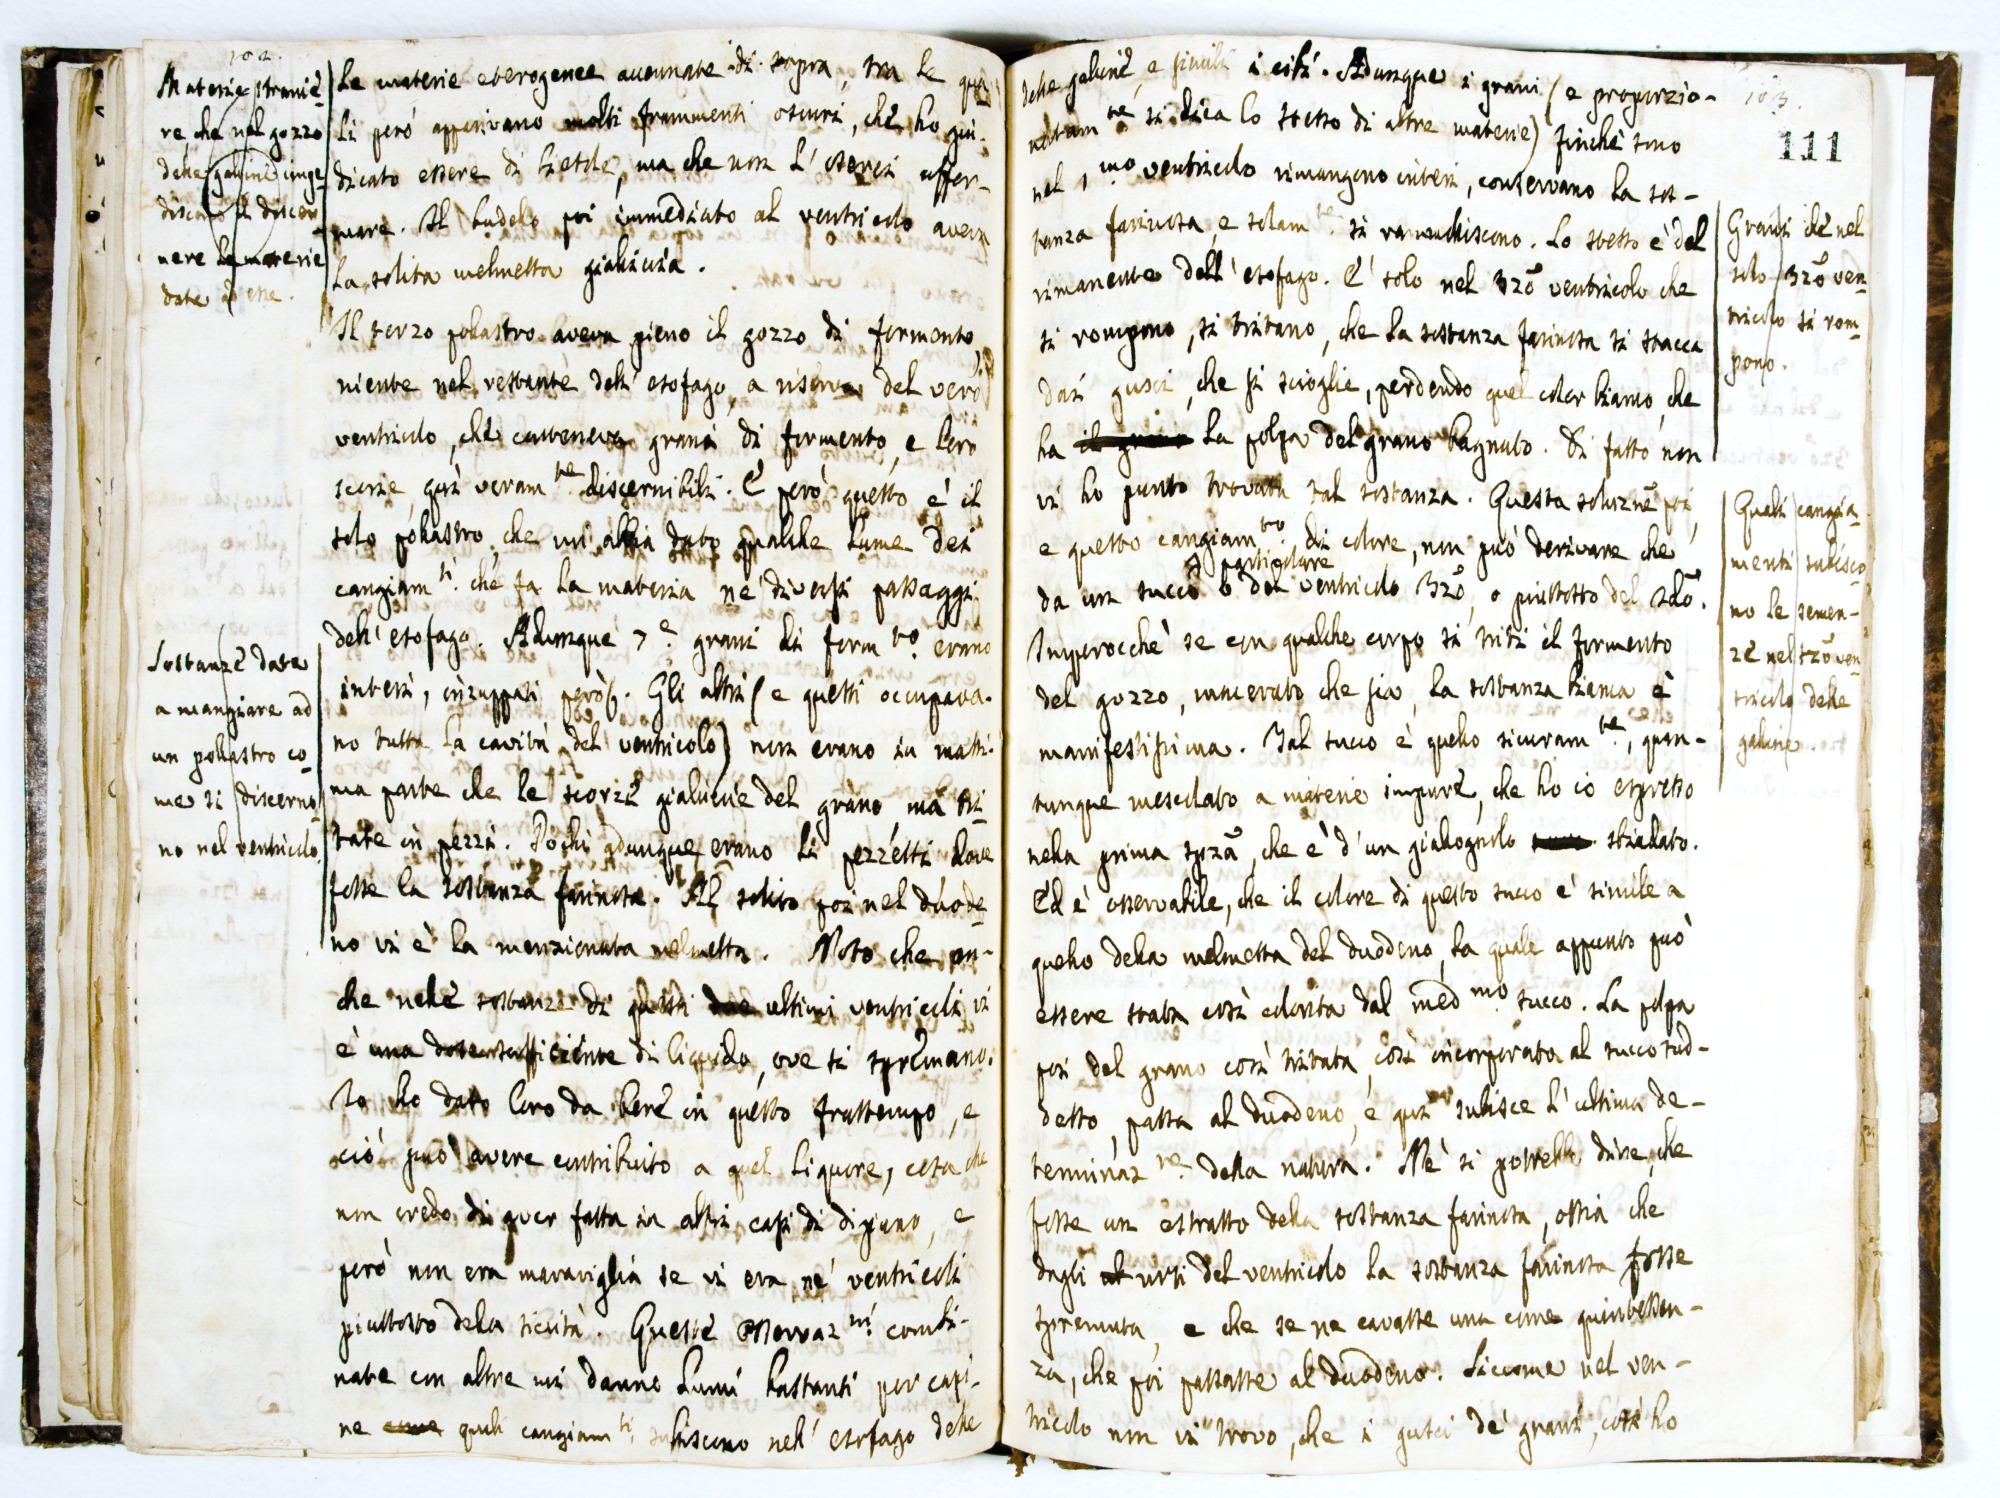 102.
Materie stranie-
re, che nel gozzo
delle galline impe-
discono il discer-
nere le materie
date ad esse.
le materie eterogenee accennate di sopra, tra le qua-
li però apparivano molti frammenti oscuri, che ho giu-
dicato essere di bietole, ma che non l'oserei affer-
mare. Il budello poi immediato al ventricolo aveva
la solita melmetta gialliccia.
Il terzo pollastro aveva pieno il gozzo di formento,
niente nel restante dell'esofago, a riserva del vero
ventricolo, che conteneva grani di formento, e loro
scorze, qui veram.te discernibili. E però questo è il
solo pollastro, che mi abbia dato qualche lume dei
cangiam.ti che fa la materia ne' diversi passaggi
dell'esofago. Adunque 7 grani di form.to erano
interi, inzuppati però. Gli altri (e questi occupava-
no tutta la cavità del ventricolo) non erano in massi-
ma parte che le scorze gialliccie del grano ma tri-
tate in pezzi. Pochi adunque erano li pezzetti dove
fosse la sostanza farinosa. Al solito poi nel duode-
no vi è la menzionata melmetta. Noto che an-
che nelle sostanze di questi due ultimi ventricoli vi
è una dose sufficiente di liquido, ove si spremano.
Io ho dato loro da bere in questo frattempo, e
ciò può avere contribuito a quel liquore, cosa che
non credo di aver fatta in altri casi di digiuno, e
però non era maraviglia se vi era ne' ventricoli
piuttosto della siccità. Queste osservaz.ni combi-
nate con altre mi danno lumi bastanti per capi-
re come quali cangiam.ti subiscono nell'esofago delle
Sostanze date
a mangiare ad
un pollastro co-
me si discerno-
no nel ventricolo.
103.
111
delle galline, e simili i cibi. Adunque i grani (e proporzio-
natam.te si dica lo stesso di altre materie) finchè sono
nel 1.mo ventricolo rimangono interi, conservano la sos-
tanza farinosa, e solam.te si rammolliscono. Lo stesso è del
rimanente dell'esofago. E' solo nel 3zo ventricolo che
si rompono, si tritano, che la sostanza farinosa si stacca
dai gusci, che si scioglie, perdendo quel color bianco, che
ha il grano la polpa del grano bagnato. Di fatto non
vi ho punto trovata tal sostanza. Questa soluzne poi,
e questo cangiam.to di colore, non può derivare che
da un succo particolare o del ventricolo 3zo, o piuttosto del 2do.
Imperocchè se con qualche corpo si triti il formento
del gozzo, macerato che sia, la sostanza bianca è
manifestissima. Tal succo è quello sicuram.te, quan-
tunque mescolato a materie impure, che ho io espresso
nella prima spza, che è d'un giallognolo sbiadato.
Ed è osservabile, che il colore di questo succo è simile a
quello della melmetta del duodeno, la quale appunto può
essere stata così colorita dal med.mo succo. La polpa
poi del grano così tritata, così incorporata al succo sud-
detto, passa al duodeno, e qui subisce l'ultima de-
terminaz.ne della natura. Nè si potrebbe dire, che
fosse un estratto della sostanza farinosa, ossia che
dagli urti del ventricolo la sostanza farinosa fosse
spremuta, e che se ne cavasse una come quintessen-
za, che poi passasse al duodeno. Siccome nel ven-
tricolo non vi trovo, che i gusci de' grani, così ho
Grani che nel
solo 3zo ven-
tricolo si rom-
pono.
Quali cangia-
menti subisco-
no le semen-
ze nel 3zo ven-
tricolo delle
galline.